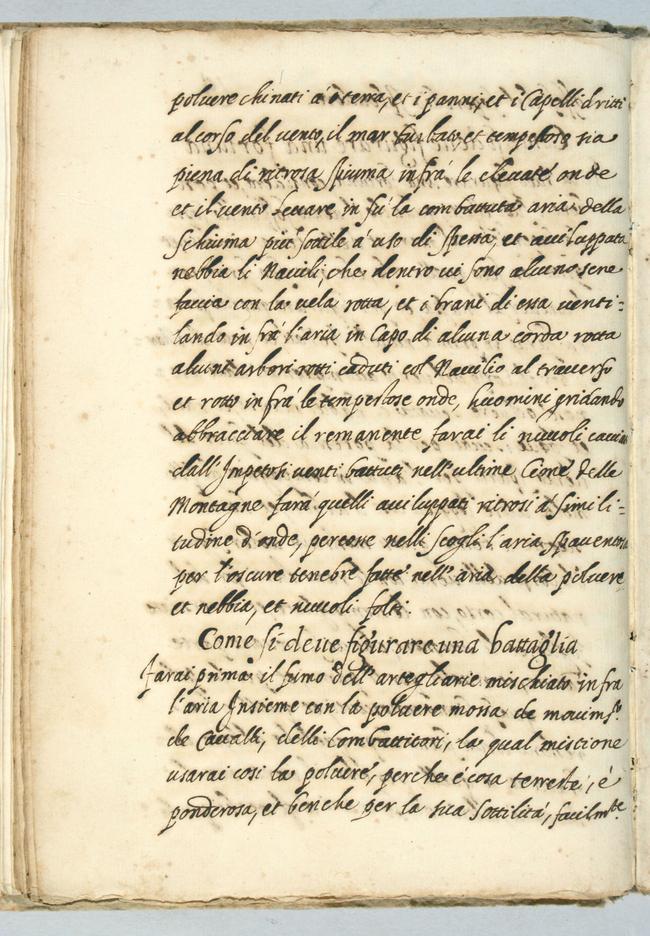 polvere chinati à terra, et i panni, et i Capelli dritti
al corso del vento, il mar turbato et tempestoso sia
piena di ritrosa spiuma infrà le elevate onde
et il vento levare in sù la combattuta aria della
schiuma più sottile à uso di spessa, et aviluppata
nebbia li Navili, che dentro vi sono alcuno sene
faccia con la vela rotta, et i brani di essa venti=
lando infrà l'aria in Capo di alcuna corda rotta
alcuni arbori rotti caduti col Navilio al traverso
et rotto infrà le tempestose onde, huomini gridando
abbracciare il remanente farai li nuvoli cacciati
dall'Impetosi venti battuti nell'ultime Cime delle
Montagne farà quelli aviluppati ritrosi à simili=
tudine d'onde, percosse nelli scogli l'aria spaventosa
per l'oscure tenebre fatte nell'aria della polvere
et nebbia, et nuvoli folti.
Come si deve figurare una battaglia
Farai prima il fumo dell'artegliarie mischiato infra
l'aria Insieme con la polvere mossa de movim.ti
de Cavalli, delli Combattitori, la qual mistione
usarai così la polvere, perche è cosa terreste, è
ponderosa, et benche per la sua sottilità, facilm.te